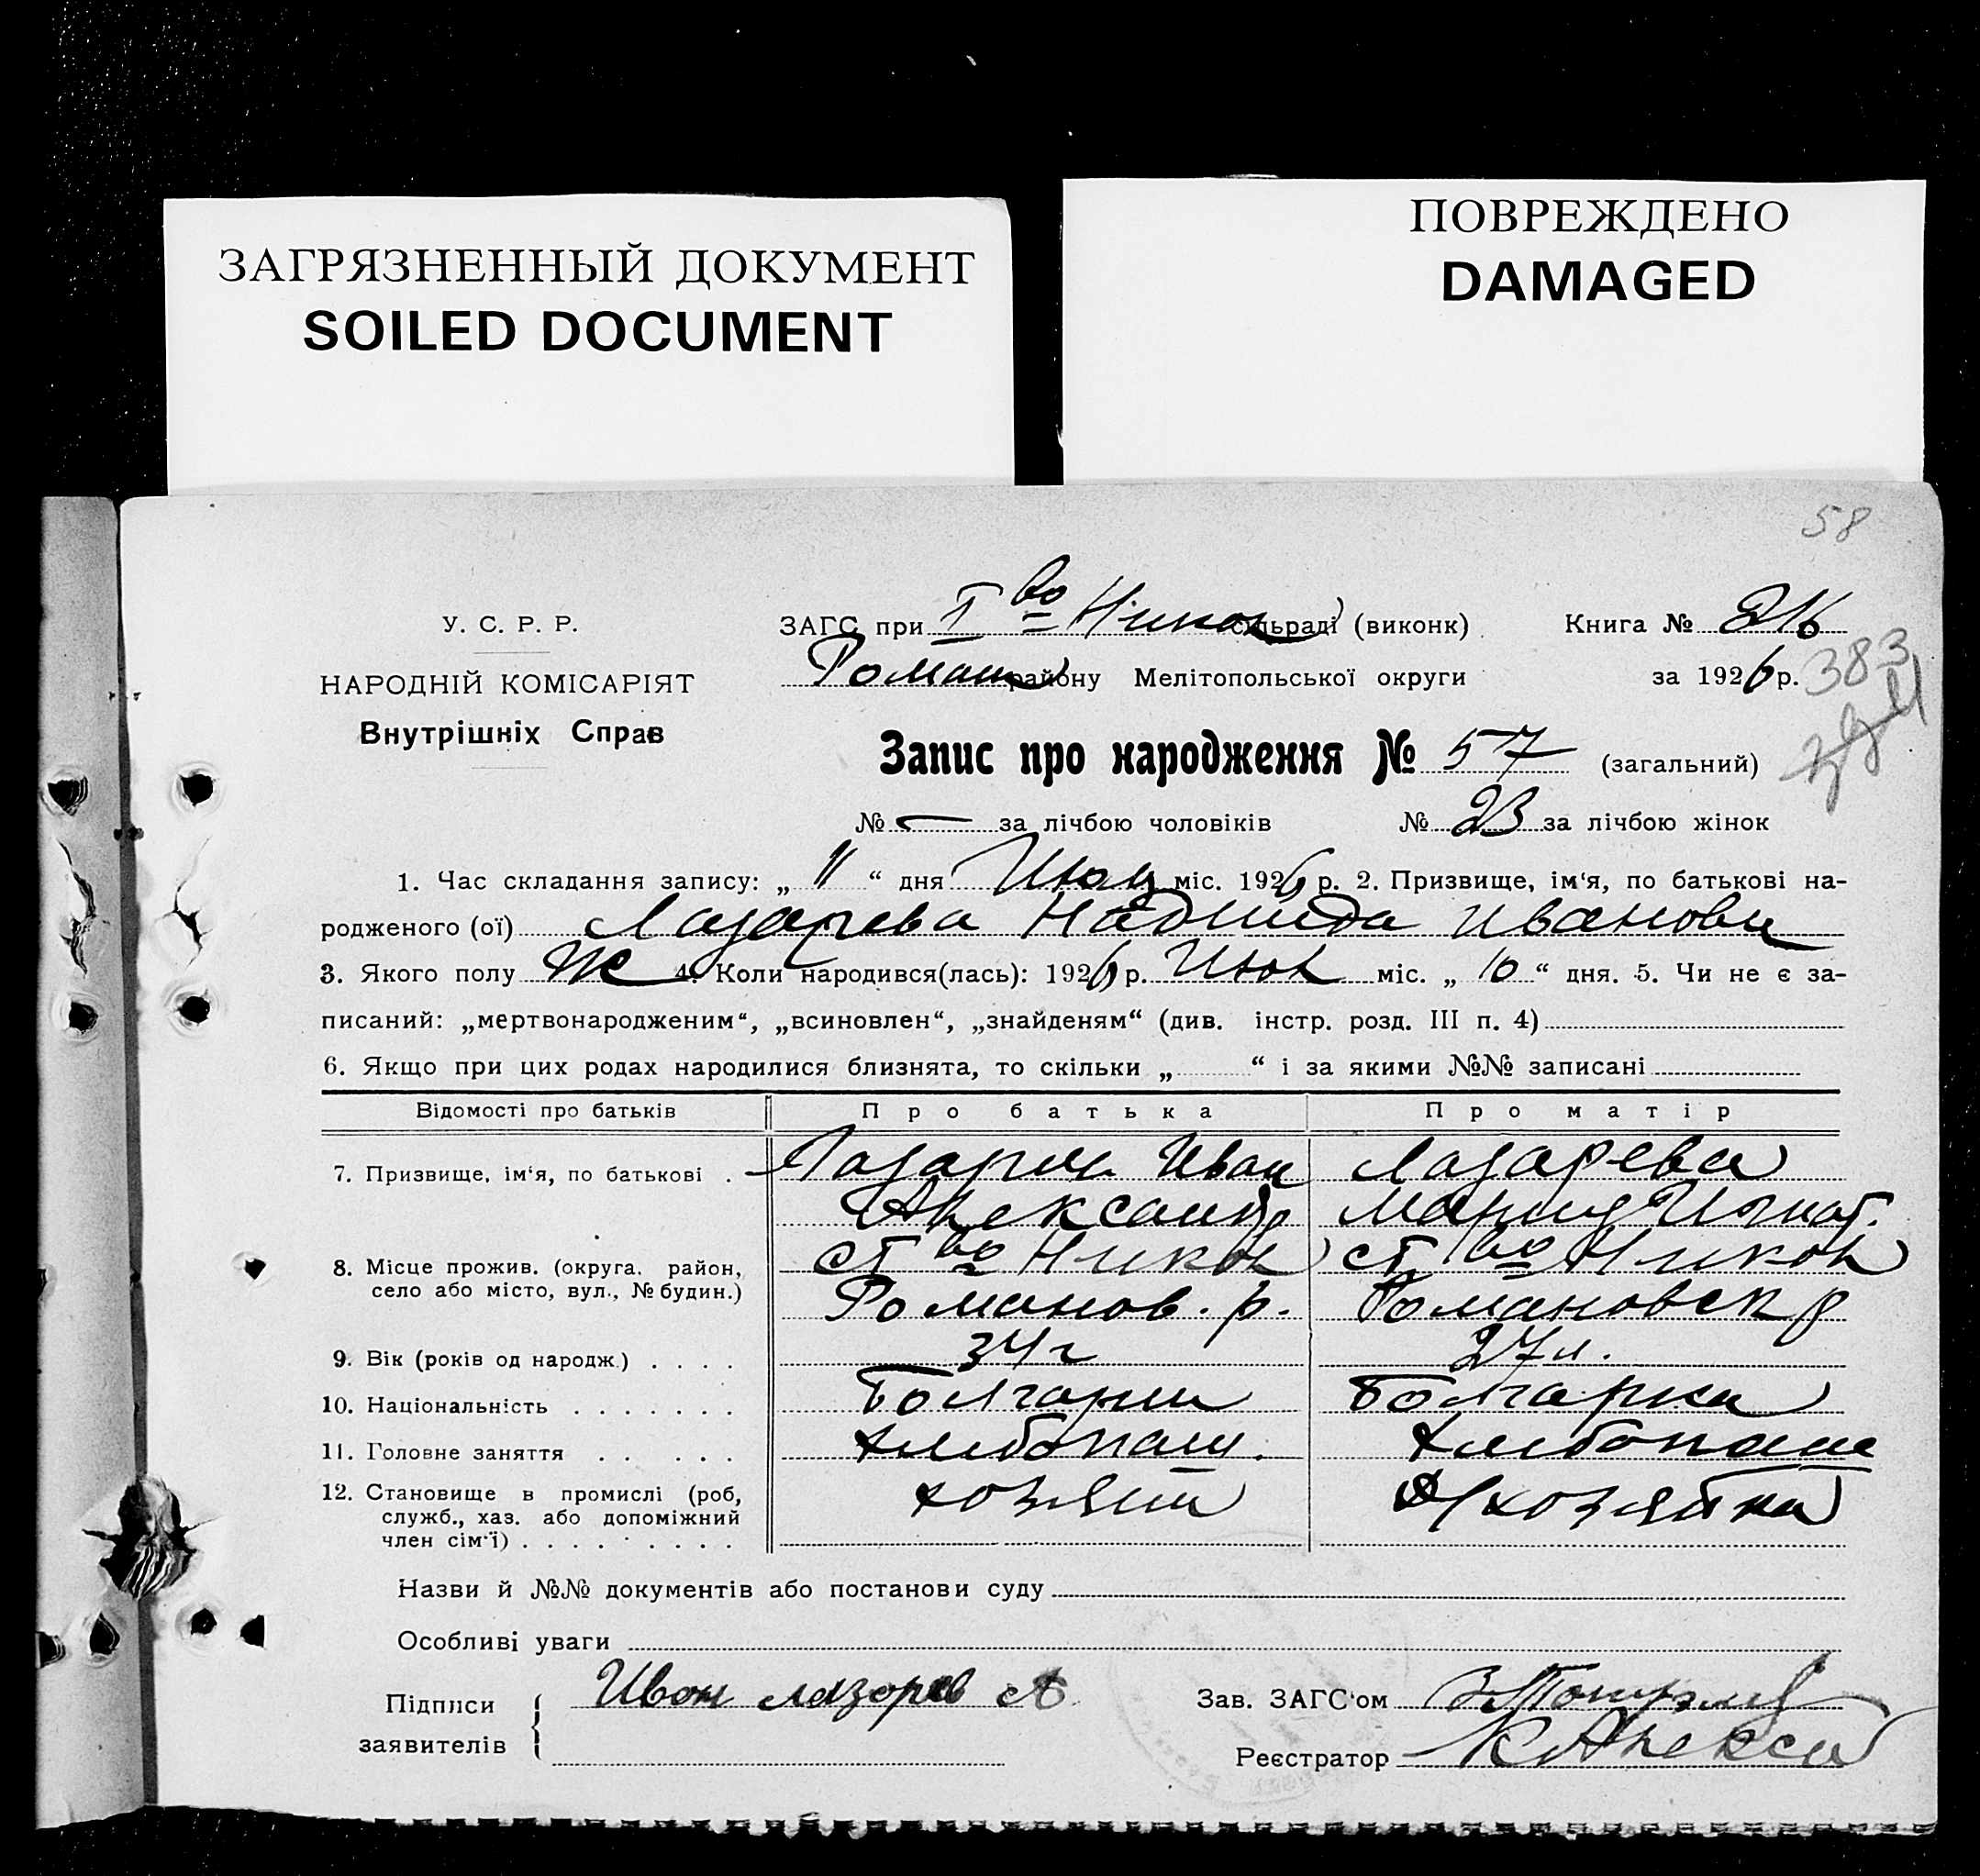 ЗАГРЯЗНЕННЫЙ ДОКУМЕНТ
SOILED DOCUMENT
ПОВРЕЖДЕНО
DAMAGED
58
У. С. Р. Р.
НАРОДНІЙ КОМІСАРІЯТ
Внутрішніх Справ
ЗАГС при І во Никол сільраді (виконк)
Книга №
Роман району Мелітопольської округи
за 1926 р. 383
Запис про народження № 57 (загальний)
№ — за лічбою чоловіків № 23 за лічбою жінок
1. Час складання запису: „ 11 “ дня Июля міс. 1926 р. 2. Призвище, ім‘я, по батькові на-
родженого (ої) Лазарева Надежда Иванова
3. Якого полу Ж 4. Коли народився(лась): 1926 р. Июл міс. „ 10 “ дня. 5. Чи не є за-
писаний: „мертвонародженим“, „всиновлен“, „знайденям“ (див. інстр. розд. III п. 4)
6. Якщо при цих родах народилися близнята, то скільки „ “ і за якими №№ записані
Відомості про батьків Про батька Про матір
7. Призвище, ім‘я, по батькові . Лазарев Иван Лазарева
Александр Мария Игнат.
8. Місце прожив. (округа, район, ст во Никол ст во Никол
село або місто, вул., № будин.) Романов. р. Романовск р
9. Вік (років од народж.) . . . . 34 г 27 л.
10. Національність . . . . . . . Болгарин Болгарка
11. Головне заняття . . . . . Хлебопаш. Хлебопаш
12. Становище в промислі (роб, хозяин хозяйка
служб., хаз. або допоміжний
член сім‘ї) . . . . . . . . .
Назви й №№ документів або постанови суду
Особливі уваги
Підписи Иван Лазорев А
заявителів
Зав. ЗАГС‘ом
Реєстратор К Алекси